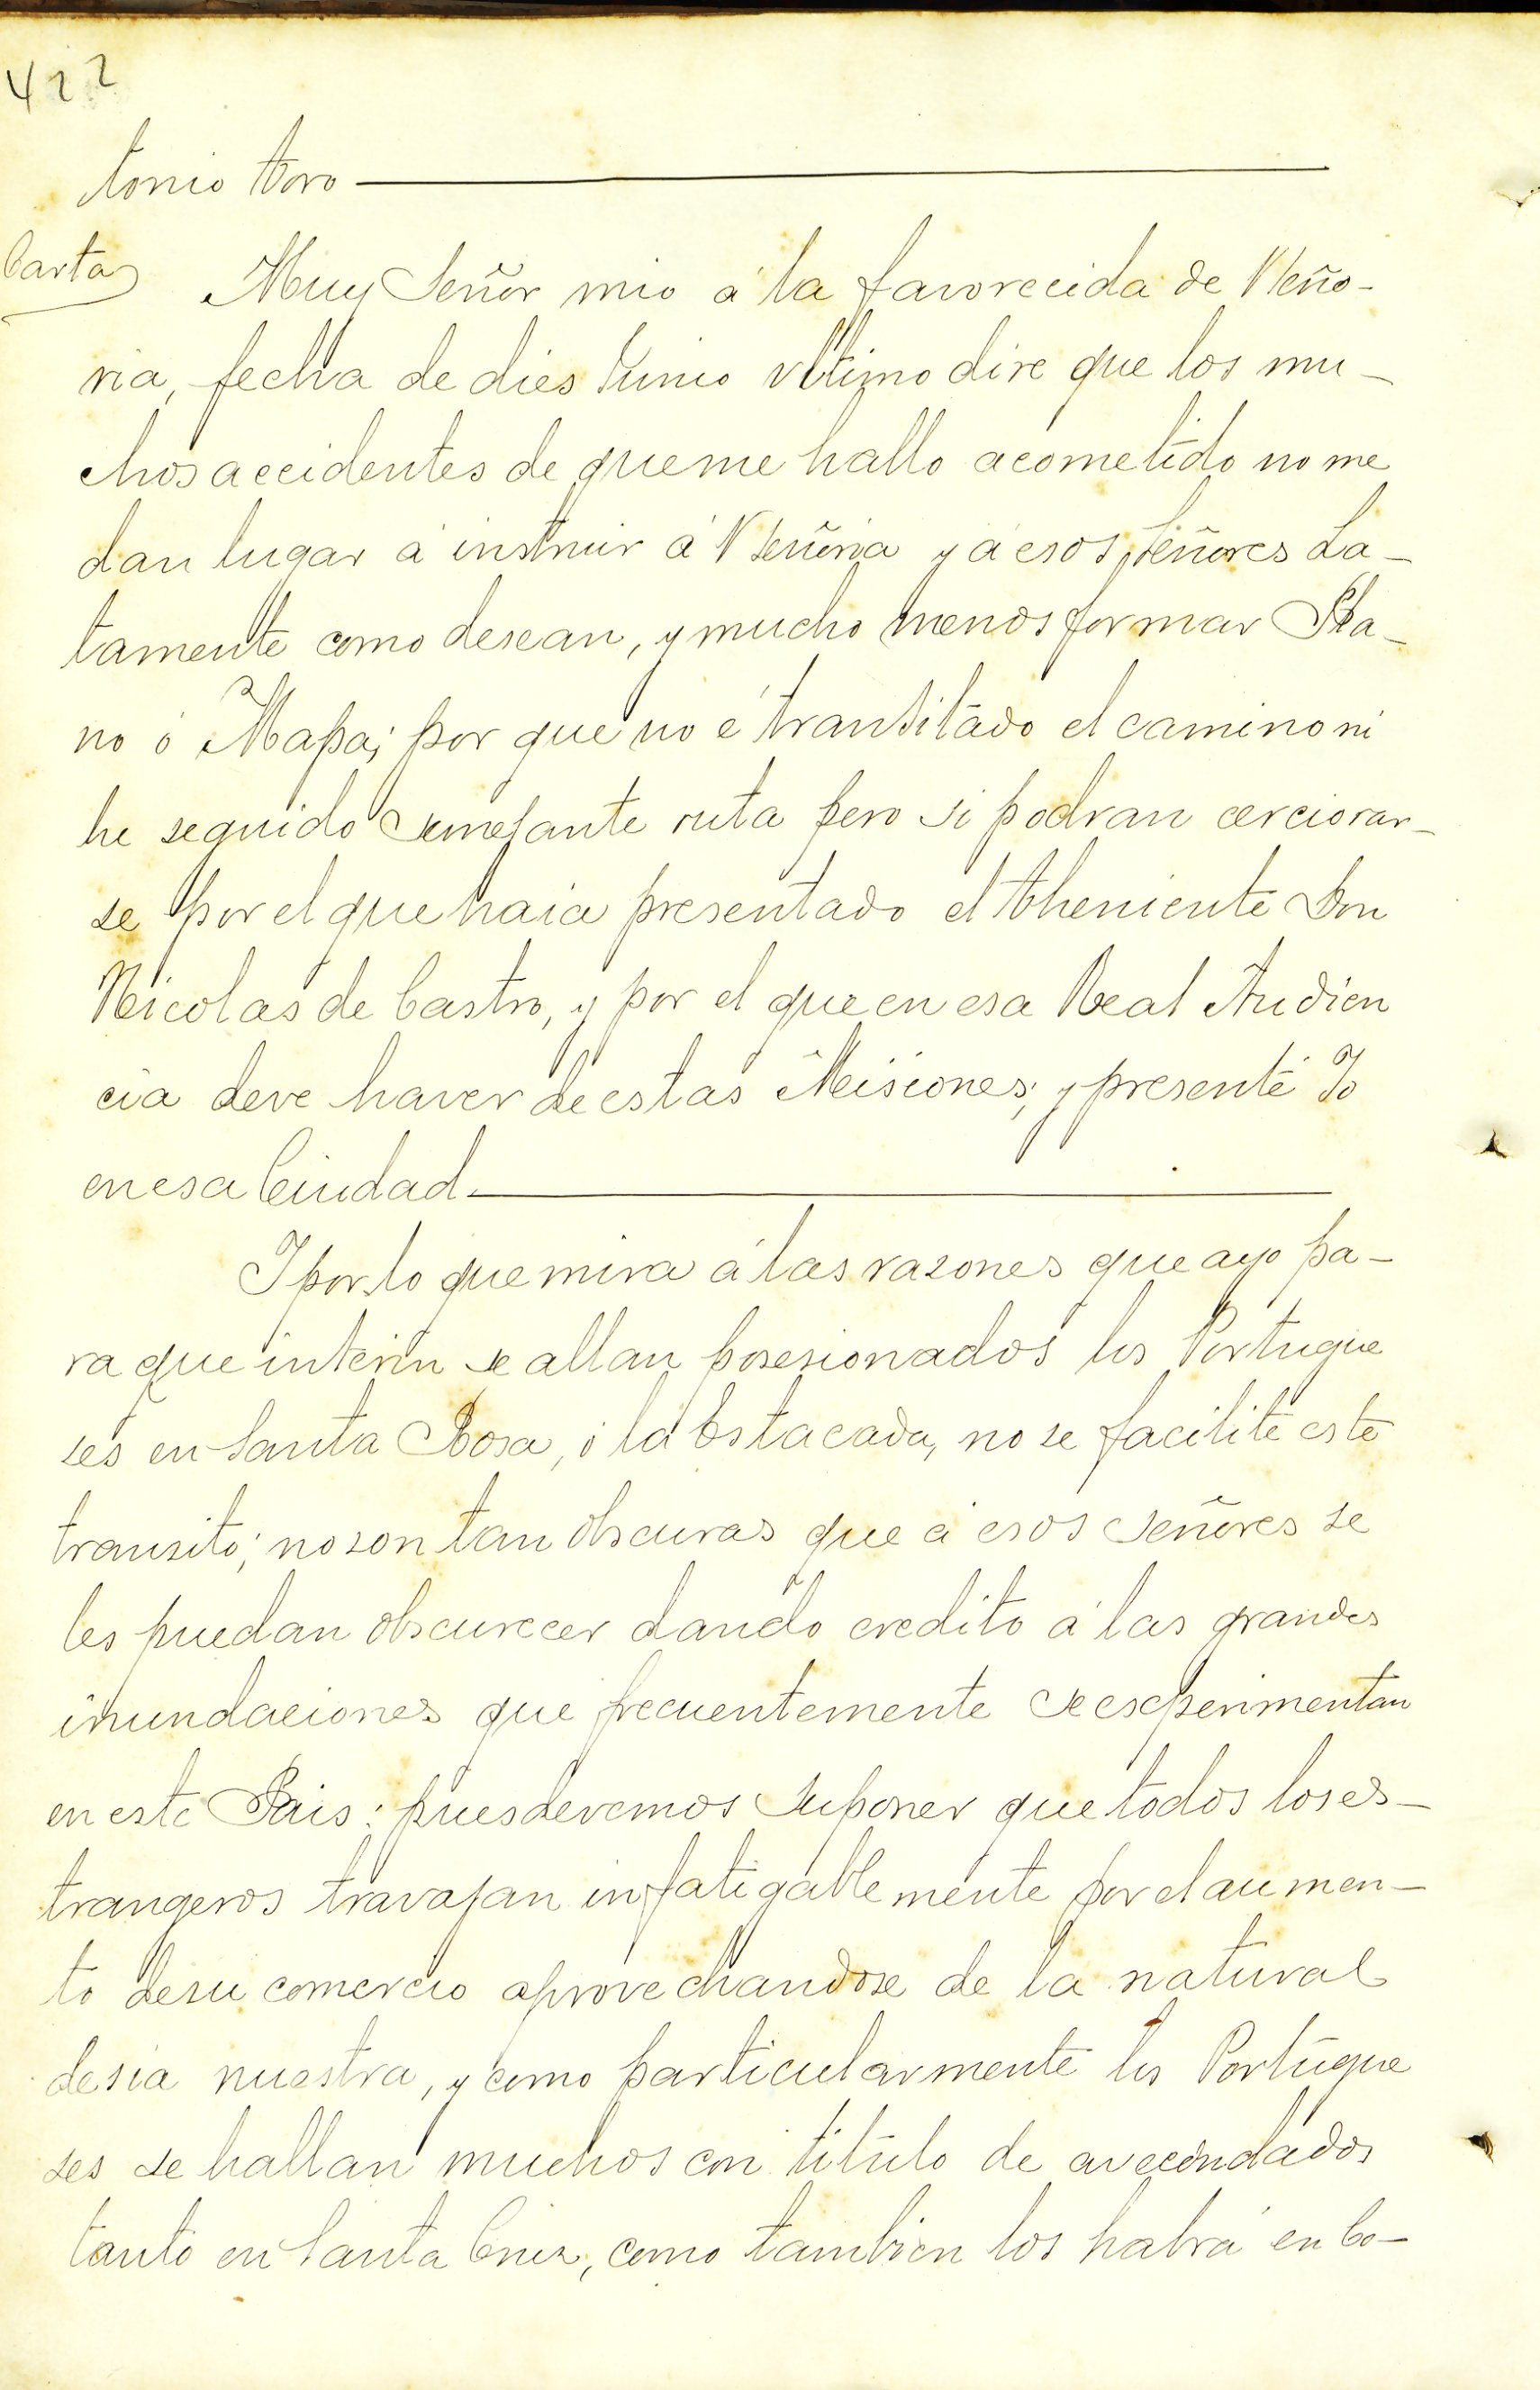 422
tonio toro
Carta
Muy Señor mio á la favorecida de VSeño-
ria, fecha de dies Junio vltimo dire que los mu-
chos accidentes de que me hallo acometido no me
dan lugar á instruir á VSeñoria y á esos Señores La-
tamente como desean, y mucho menos formar Pla-
no ó Mapa; por que no é transitado el camino ni
he seguido semejante ruta pero si podran cerciorar-
se por el que haia presentado el theniente Don
Nicolas de Castro, y por el que en esa Real Audien
cia deve haver de estas Misiones; y presenté Yo
en esa Ciudad
Y por lo que mira á las razones que ayo pa-
ra que interin se allan posesionados los Portugue
ses en Santa Rosa, ó la Estacada, no se facilite este
transito; no son tan obscuras que á esos señores se
les puedan obscurecer dando credito á las grandes
inundaciones que frecuentemente se esperimentan
en este Pais: pues devemos suponer que todos los es-
trangeros travajan infatigablemente por el aumen-
to de su comercio aprovechandose de la natural
desia nuestra, y como particularmente los Portugue
ses se hallan muchos con titulo de avecindados
tanto en Santa Cruz, como tambien los habrá en Co-